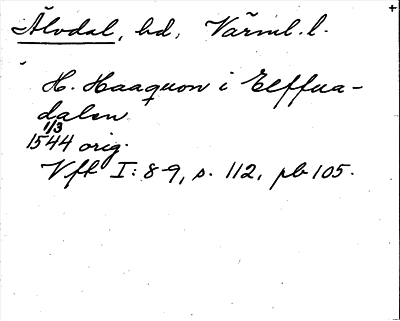 Älvdal, hd, Värml. l.
H. Haaquon i Elffua-
dalen
1/3
1544 orig.
Vft I: 8-9, s. 112, pb 105.